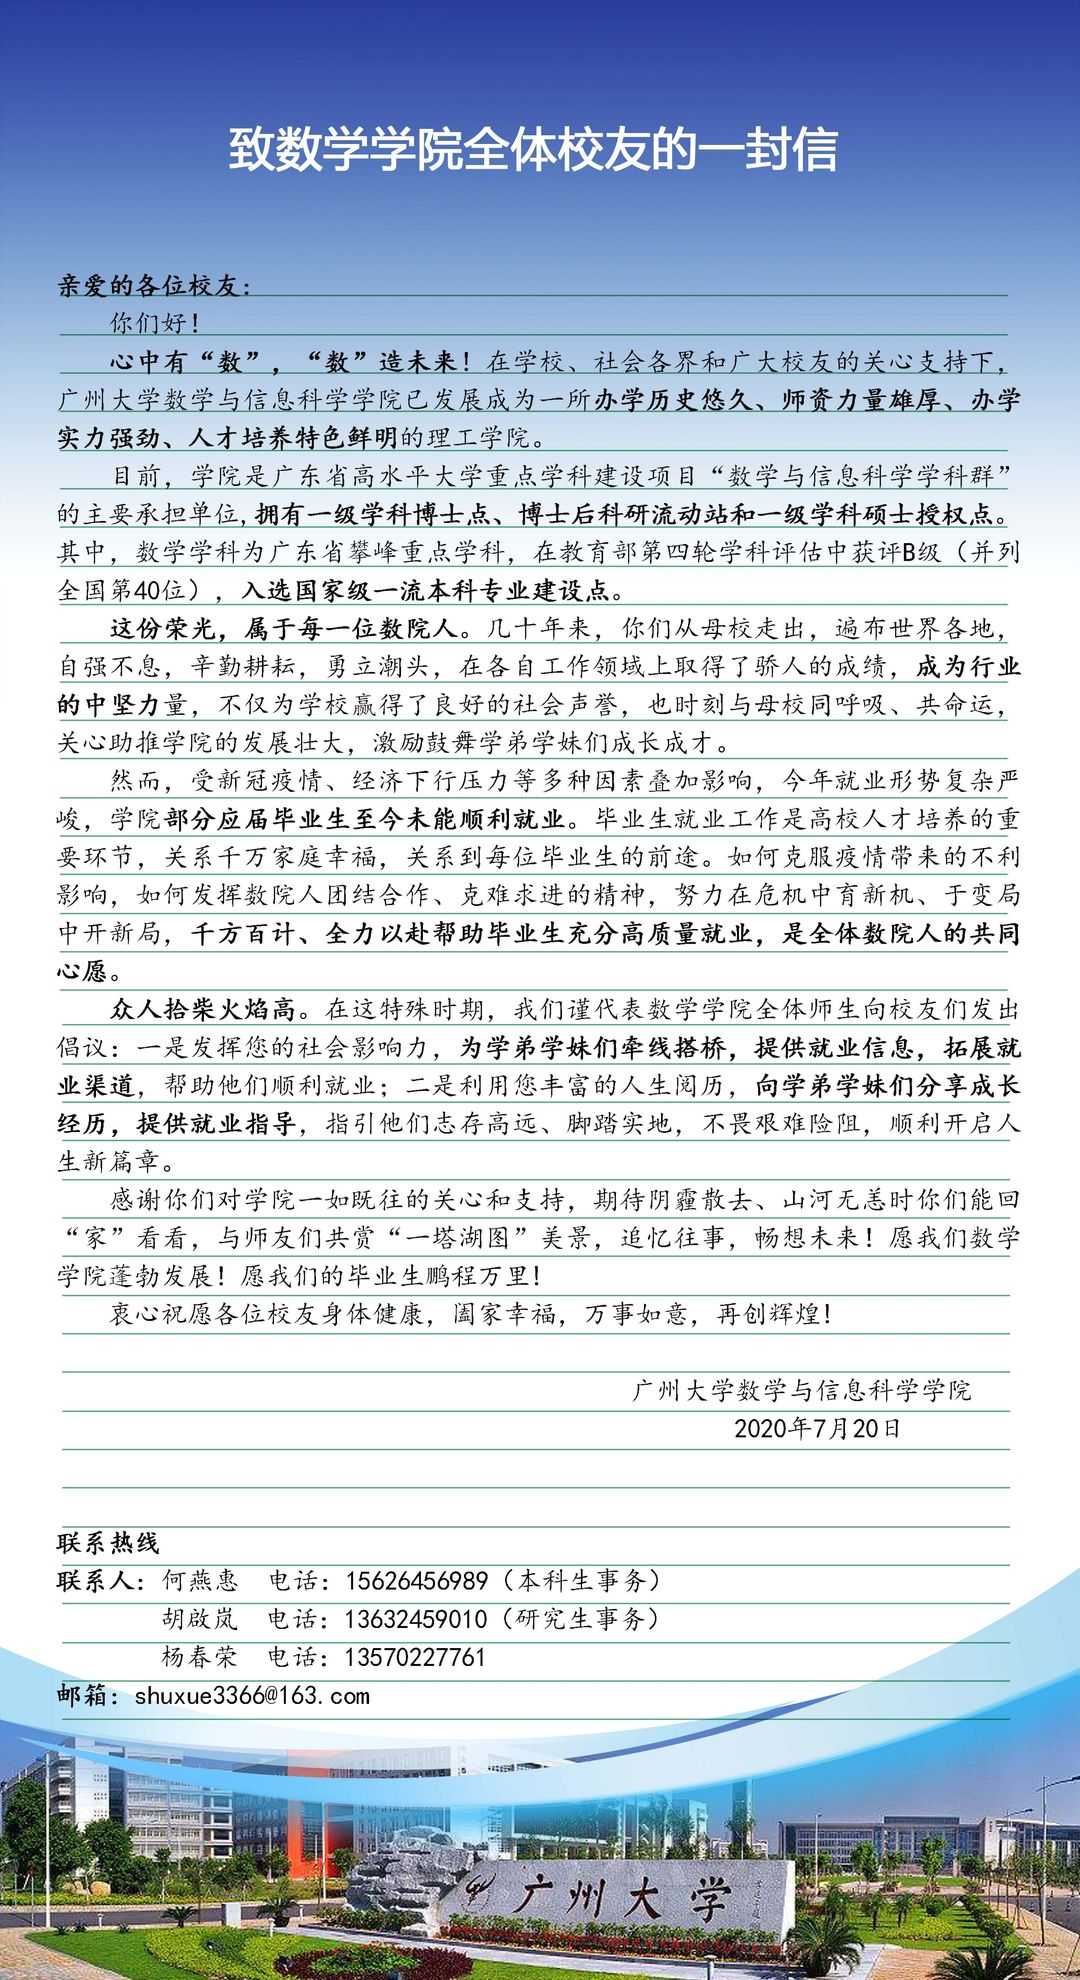 致数学学院全体校友的一封信
亲爱的各位校友：
你们好！
心中有“数”，“数”造未来！在学校、社会各界和广大校友的关心支持下，
广州大学数学与信息科学学院已发展成为一所办学历史悠久、师资力量雄厚、办学
实力强劲、人才培养特色鲜明的理工学院。
目前，学院是广东省高水平大学重点学科建设项目“数学与信息科学学科群”
的主要承担单位,拥有一级学科博士点、博士后科研流动站和一级学科硕士授权点。
其中，数学学科为广东省攀峰重点学科，在教育部第四轮学科评估中获评B级（并列
全国第40位），入选国家级一流本科专业建设点。
这份荣光，属于每一位数院人。几十年来，你们从母校走出，遍布世界各地，
自强不息，辛勤耕耘，勇立潮头，在各自工作领域上取得了骄人的成绩，成为行业
的中坚力量，不仅为学校赢得了良好的社会声誉，也时刻与母校同呼吸、共命运，
关心助推学院的发展壮大，激励鼓舞学弟学妹们成长成才。
然而，受新冠疫情、经济下行压力等多种因素叠加影响，今年就业形势复杂严
峻，学院部分应届毕业生至今未能顺利就业。毕业生就业工作是高校人才培养的重
要环节，关系千万家庭幸福，关系到每位毕业生的前途。如何克服疫情带来的不利
影响，如何发挥数院人团结合作、克难求进的精神，努力在危机中育新机、于变局
中开新局，千方百计、全力以赴帮助毕业生充分高质量就业，是全体数院人的共同
心愿。
众人拾柴火焰高。在这特殊时期，我们谨代表数学学院全体师生向校友们发出
倡议：一是发挥您的社会影响力，为学弟学妹们牵线搭桥，提供就业信息，拓展就
业渠道，帮助他们顺利就业；二是利用您丰富的人生阅历，向学弟学妹们分享成长
经历，提供就业指导，指引他们志存高远、脚踏实地，不畏艰难险阻，顺利开启人
生新篇章。
感谢你们对学院一如既往的关心和支持，期待阴霾散去、山河无恙时你们能回
“家”看看，与师友们共赏“一塔湖图”美景，追忆往事，畅想未来！愿我们数学
学院蓬勃发展！愿我们的毕业生鹏程万里！
衷心祝愿各位校友身体健康，阖家幸福，万事如意，再创辉煌！
广州大学数学与信息科学学院
2020年7月20日
联系热线
联系人：何燕惠 电话：15626456989（本科生事务）
胡啟岚 电话：13632459010（研究生事务）
杨春荣 电话：13570227761
邮箱：shuxue3366@163.com
广州大学